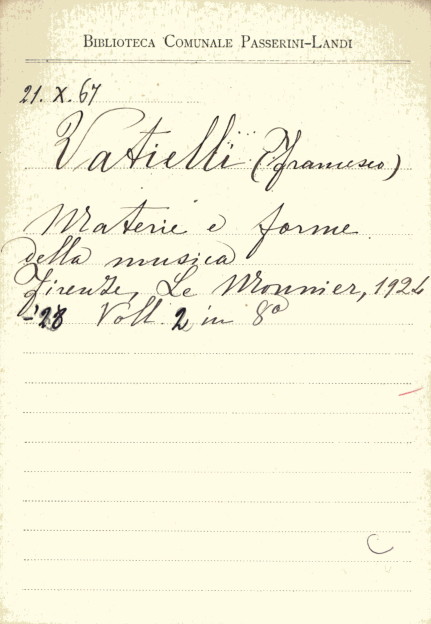 BIBLIOTECA COMUNALE PASSERINI-LANDI
21. X. 67
Vatielli (Francesco)
Materie e forme
della musica
Firenze, Le Monnier, 192
-'28 Voll. 2 in 8º
C